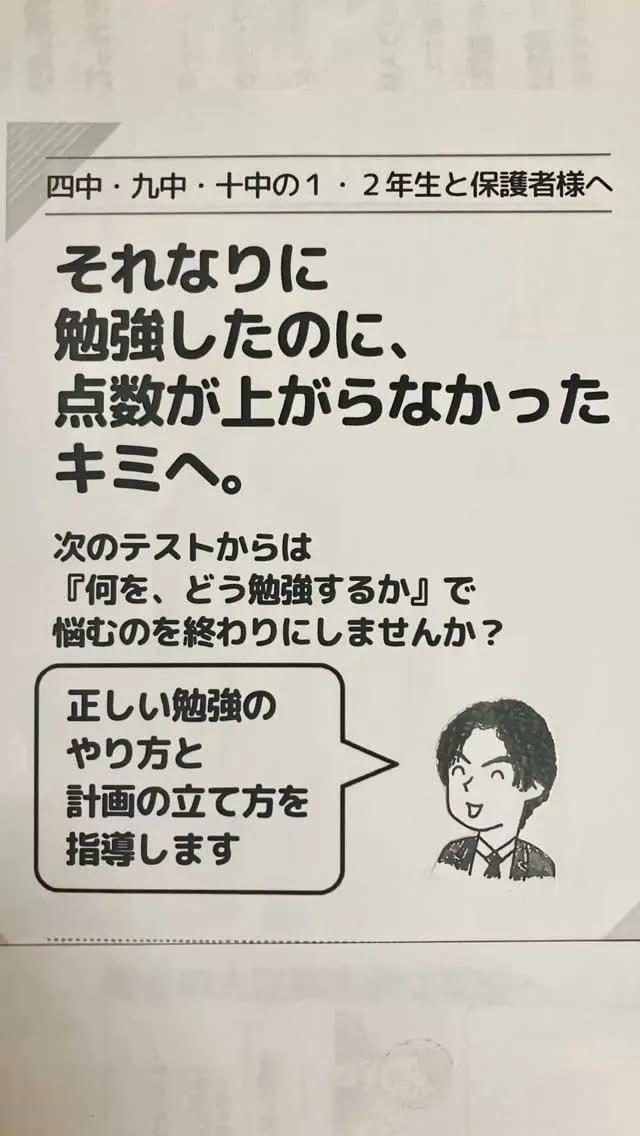 四中・九中・十中の１・２年生と保護者様へ
それなりに
勉強したのに、
点数が上がらなかった
キミへ。
次のテストからは
『何を、どう勉強するか』で
悩むのを終わりにしませんか？
正しい勉強の
やり方と
計画の立て方を
指導します